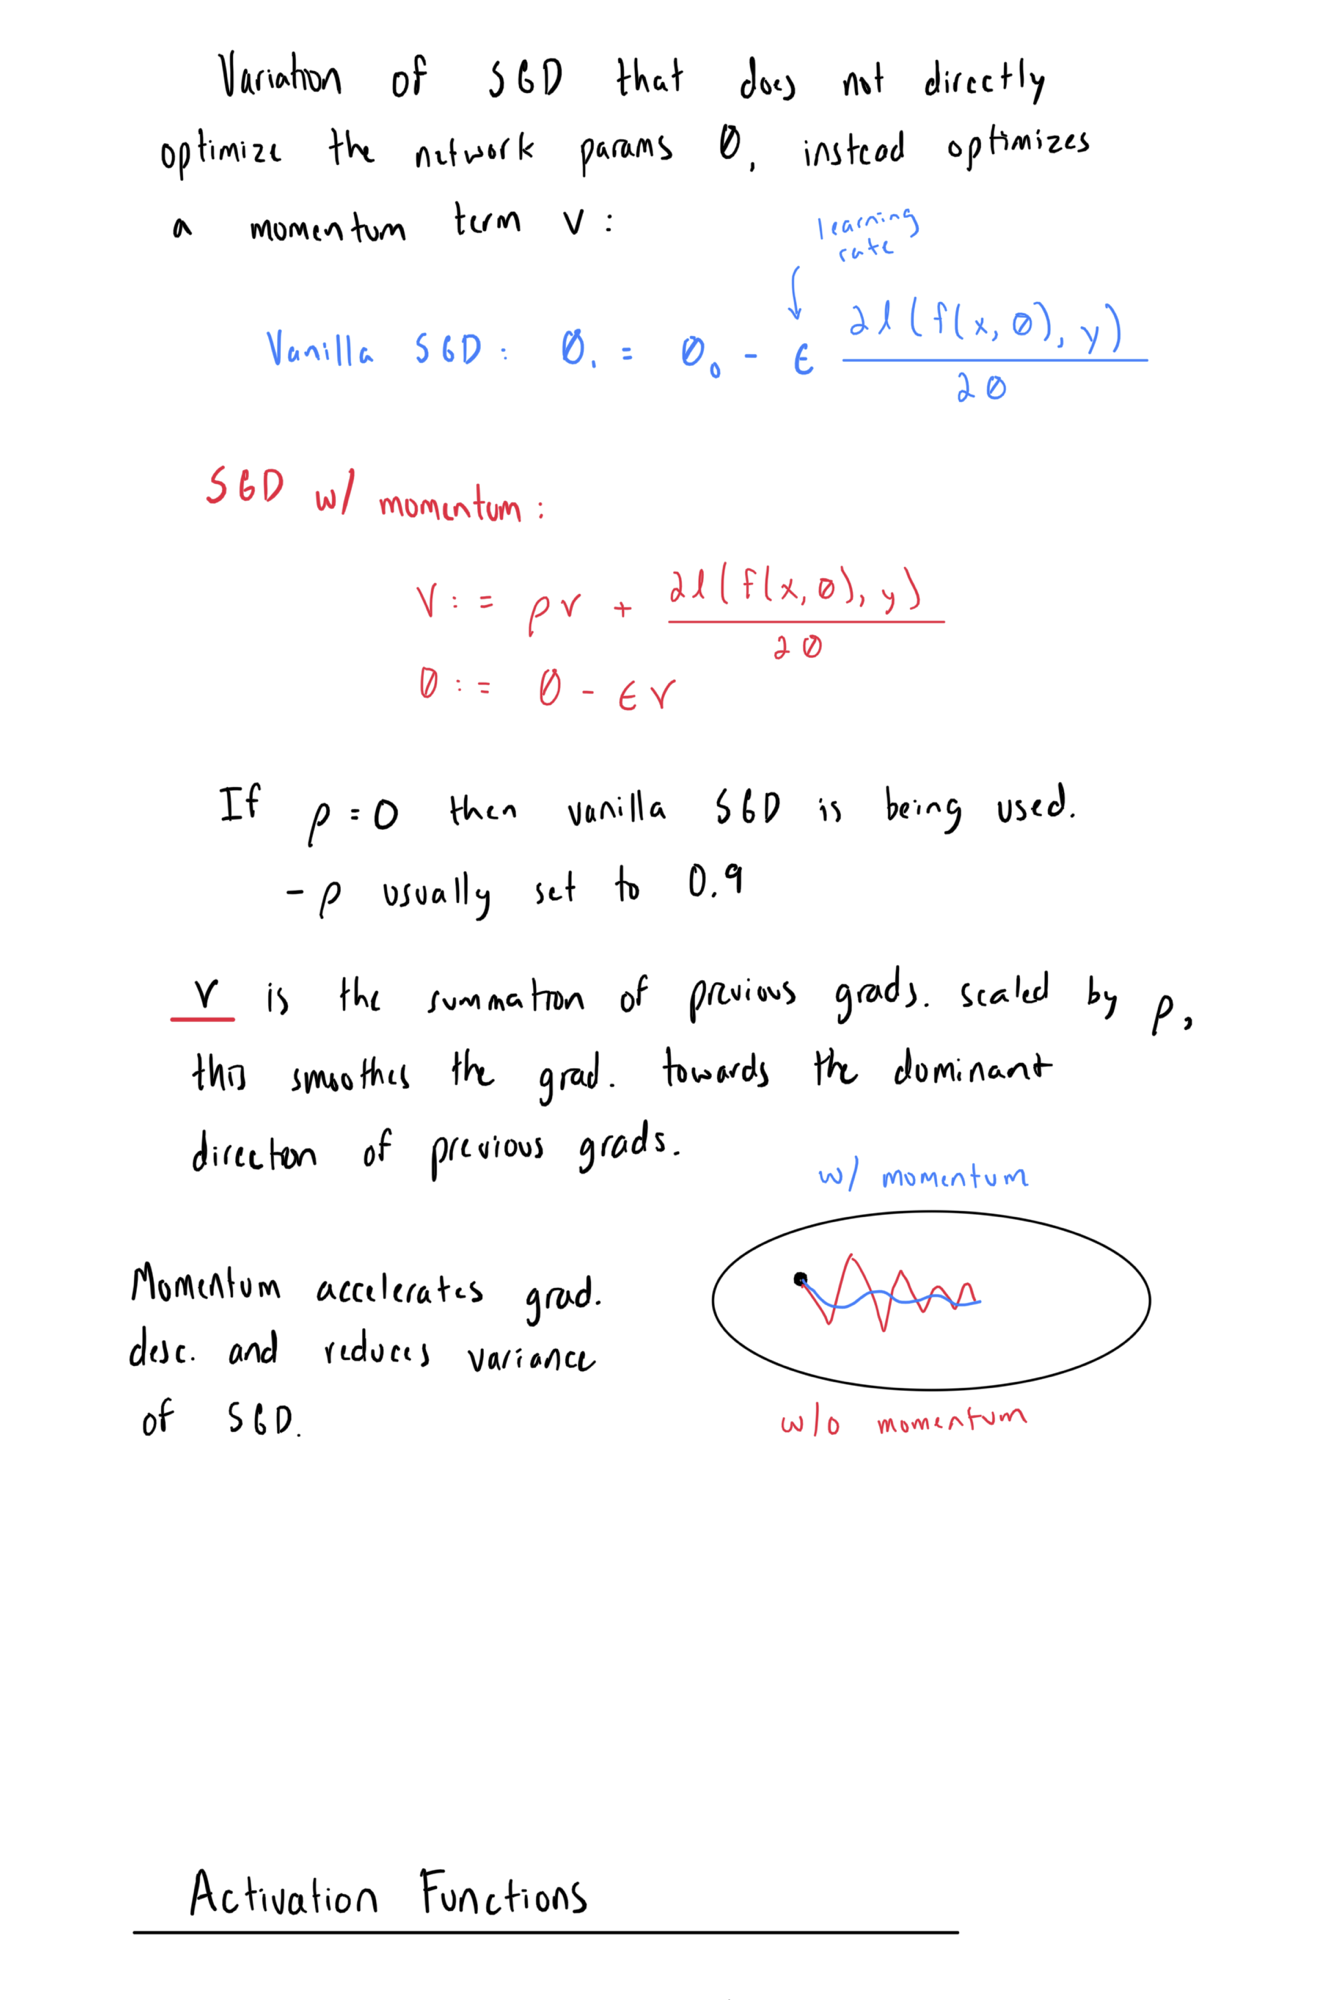 Variation of SGD that does not directly
optimize the network params θ, instead optimizes
a momentum term v:
learning
rate
Vanilla SGD: θ₁ = θ₀ - ε ∂l(f(x, θ), y) / ∂θ
SGD w/ momentum:
v := ρv + ∂l(f(x, θ), y) / ∂θ
θ := θ - εv
If ρ = 0 then vanilla SGD is being used.
- ρ usually set to 0.9
v is the summation of previous grads. scaled by ρ,
this smoothes the grad. towards the dominant
direction of previous grads.
w/ momentum
Momentum accelerates grad.
desc. and reduces variance
of SGD.
w/o momentum
Activation Functions